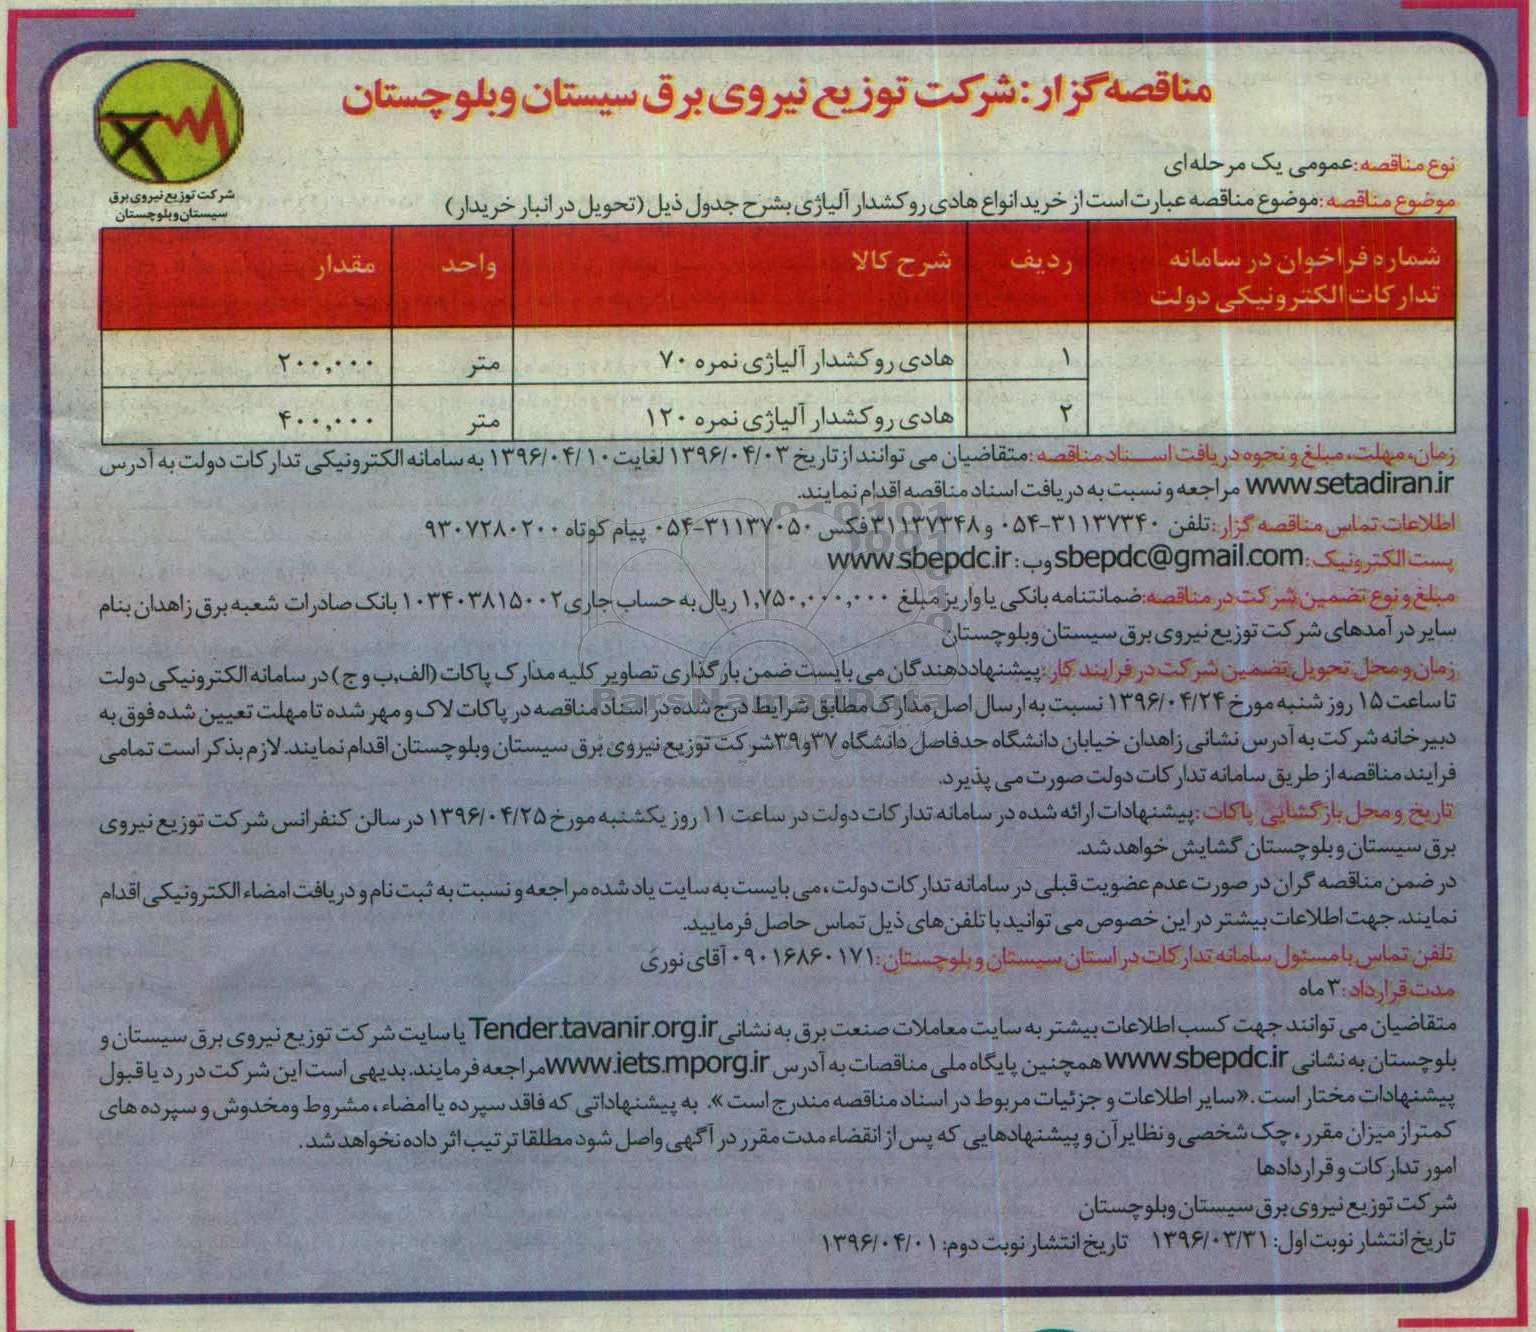 مناقصه‌گزار: شرکت توزیع نیروی برق سیستان وبلوچستان
شرکت توزیع نیروی برق
سیستان‌وبلوچستان
نوع مناقصه: عمومی یک مرحله‌ای
موضوع مناقصه: موضوع مناقصه عبارت است از خرید انواع هادی روکشدار آلیاژی بشرح جدول ذیل (تحویل در انبار خریدار)
شماره فراخوان در سامانه تدارکات الکترونیکی دولت	ردیف	شرح کالا	واحد	مقدار
۱	هادی روکشدار آلیاژی نمره ۷۰	متر	۲۰۰,۰۰۰
۲	هادی روکشدار آلیاژی نمره ۱۲۰	متر	۴۰۰,۰۰۰
زمان، مهلت، مبلغ و نحوه دریافت اسـناد مناقصه: متقاضیان می توانند از تاریخ ۱۳۹۶/۰۴/۰۳ لغایت ۱۳۹۶/۰۴/۱۰ به سامانه الکترونیکی تدارکات دولت به آدرس
www.setadiran.ir مراجعه و نسبت به دریافت اسناد مناقصه اقدام نمایند.
اطلاعات تماس مناقصه گزار: تلفن ۳۱۱۳۷۳۴۰-۰۵۴ و ۳۱۱۳۷۳۴۸ فکس ۳۱۱۳۷۰۵۰-۰۵۴ پیام کوتاه ۹۳۰۷۲۸۰۲۰۰
پست الکترونیک: sbepdc@gmail.com وب: www.sbepdc.ir
مبلغ و نوع تضمین شرکت در مناقصه: ضمانتنامه بانکی یا واریز مبلغ ۱,۷۵۰,۰۰۰,۰۰۰ ریال به حساب جاری ۱۰۳۴۰۳۸۱۵۰۰۲ بانک صادرات شعبه برق زاهدان بنام
سایر درآمدهای شرکت توزیع نیروی برق سیستان وبلوچستان
زمان و محل تحویل تضمین شرکت در فرایند کار: پیشنهاددهندگان می بایست ضمن بارگذاری تصاویر کلیه مدارک پاکات (الف,ب و ج) در سامانه الکترونیکی دولت
تا ساعت ۱۵ روز شنبه مورخ ۱۳۹۶/۰۴/۲۴ نسبت به ارسال اصل مدارک مطابق شرایط درج شده در اسناد مناقصه در پاکات لاک و مهر شده تا مهلت تعیین شده فوق به
دبیرخانه شرکت به آدرس نشانی زاهدان خیابان دانشگاه حدفاصل دانشگاه ۳۷و۳۹ شرکت توزیع نیروی برق سیستان وبلوچستان اقدام نمایند. لازم بذکر است تمامی
فرایند مناقصه از طریق سامانه تدارکات دولت صورت می پذیرد.
تاریخ و محل بازگشایی پاکات: پیشنهادات ارائه شده در سامانه تدارکات دولت در ساعت ۱۱ روز یکشنبه مورخ ۱۳۹۶/۰۴/۲۵ در سالن کنفرانس شرکت توزیع نیروی
برق سیستان و بلوچستان گشایش خواهد شد.
در ضمن مناقصه گران در صورت عدم عضویت قبلی در سامانه تدارکات دولت، می بایست به سایت یاد شده مراجعه و نسبت به ثبت نام و دریافت امضاء الکترونیکی اقدام
نمایند. جهت اطلاعات بیشتر در این خصوص می توانید با تلفن‌های ذیل تماس حاصل فرمایید.
تلفن تماس با مسئول سامانه تدارکات در استان سیستان و بلوچستان: ۰۹۰۱۶۸۶۰۱۷۱ آقای نوری
مدت قرارداد: ۳ ماه
متقاضیان می توانند جهت کسب اطلاعات بیشتر به سایت معاملات صنعت برق به نشانی Tender.tavanir.org.ir یا سایت شرکت توزیع نیروی برق سیستان و
بلوچستان به نشانی www.sbepdc.ir همچنین پایگاه ملی مناقصات به آدرس www.iets.mporg.ir مراجعه فرمایند. بدیهی است این شرکت در رد یا قبول
پیشنهادات مختار است. «سایر اطلاعات و جزئیات مربوط در اسناد مناقصه مندرج است». به پیشنهاداتی که فاقد سپرده یا امضاء، مشروط ومخدوش و سپرده های
کمتر از میزان مقرر، چک شخصی و نظایر آن و پیشنهادهایی که پس از انقضاء مدت مقرر در آگهی واصل شود مطلقا ترتیب اثر داده نخواهد شد.
امور تدارکات و قراردادها
شرکت توزیع نیروی برق سیستان وبلوچستان
تاریخ انتشار نوبت اول: ۱۳۹۶/۰۳/۳۱ تاریخ انتشار نوبت دوم: ۱۳۹۶/۰۴/۰۱
ParsNamadData